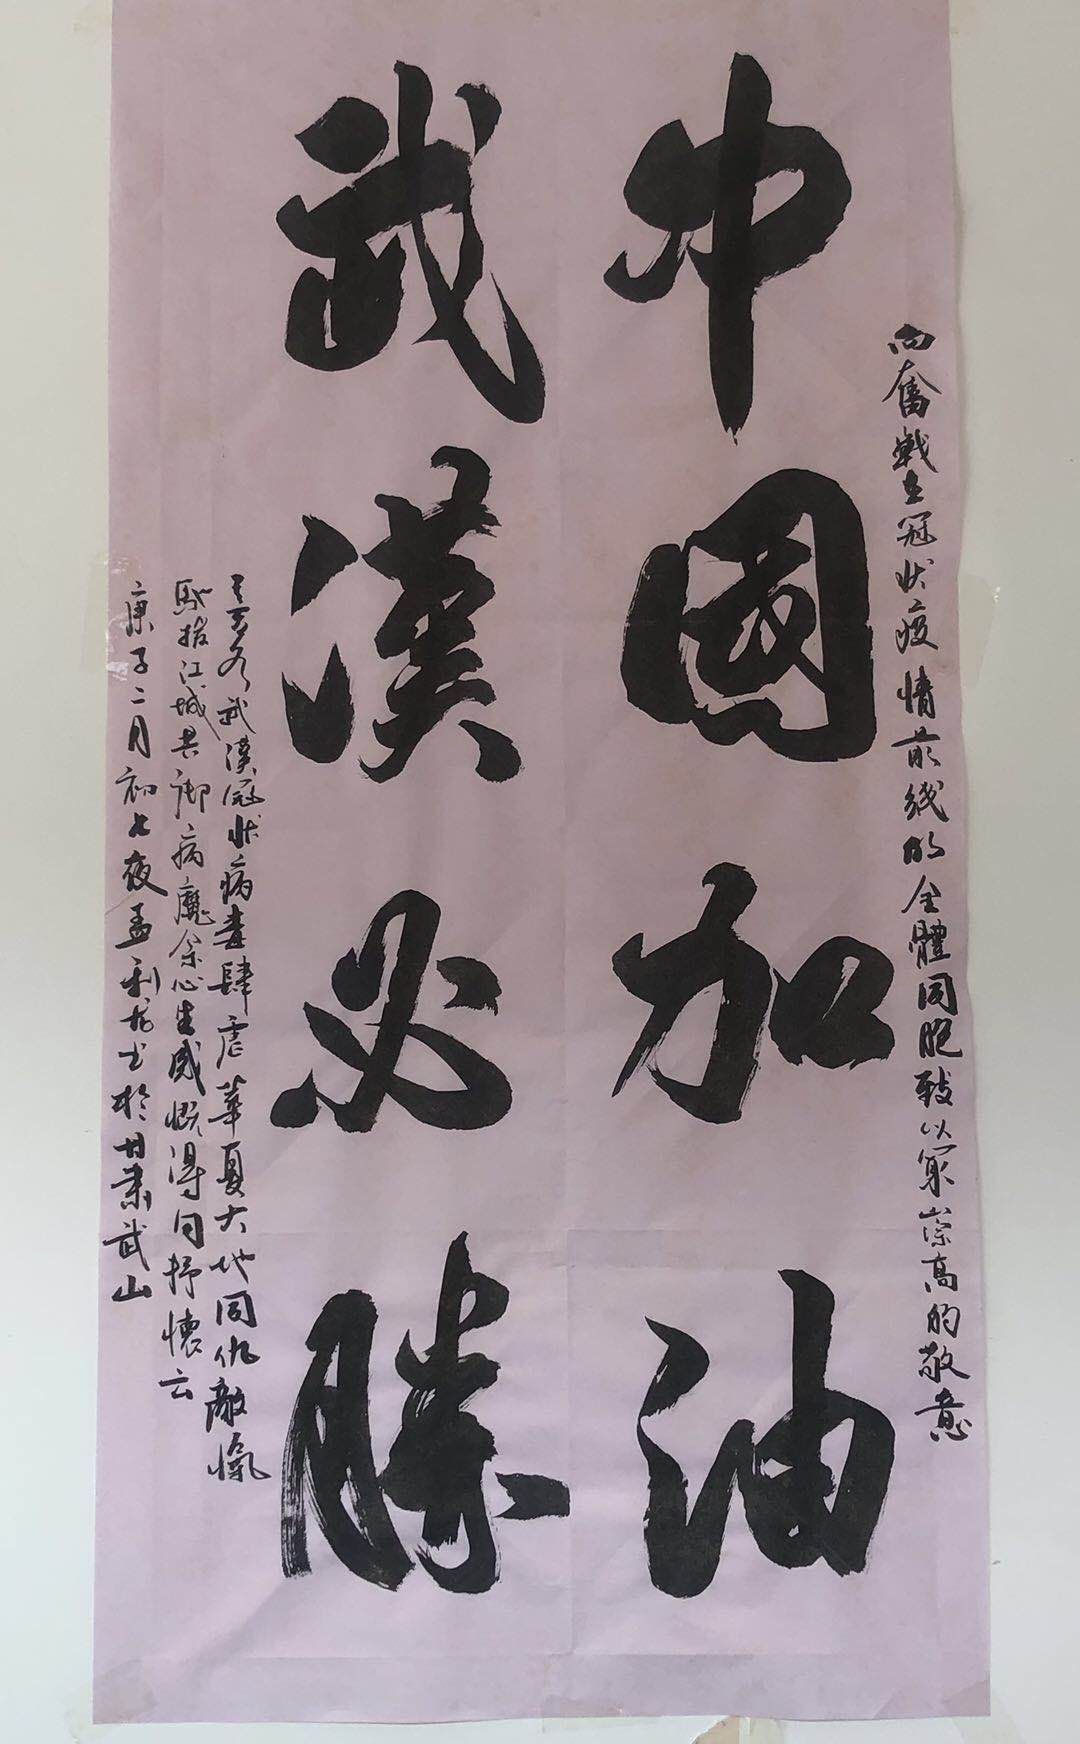 向奮戰在冠狀疫情前线的全體同胞致以最崇高的敬意
中國加油
武漢必勝
武漢冠状病毒肆虐華夏大地同仇敵愾
馳援江城共御病魔余心生感慨得句抒懷云
庚子二月初七夜孟利书於甘肃武山